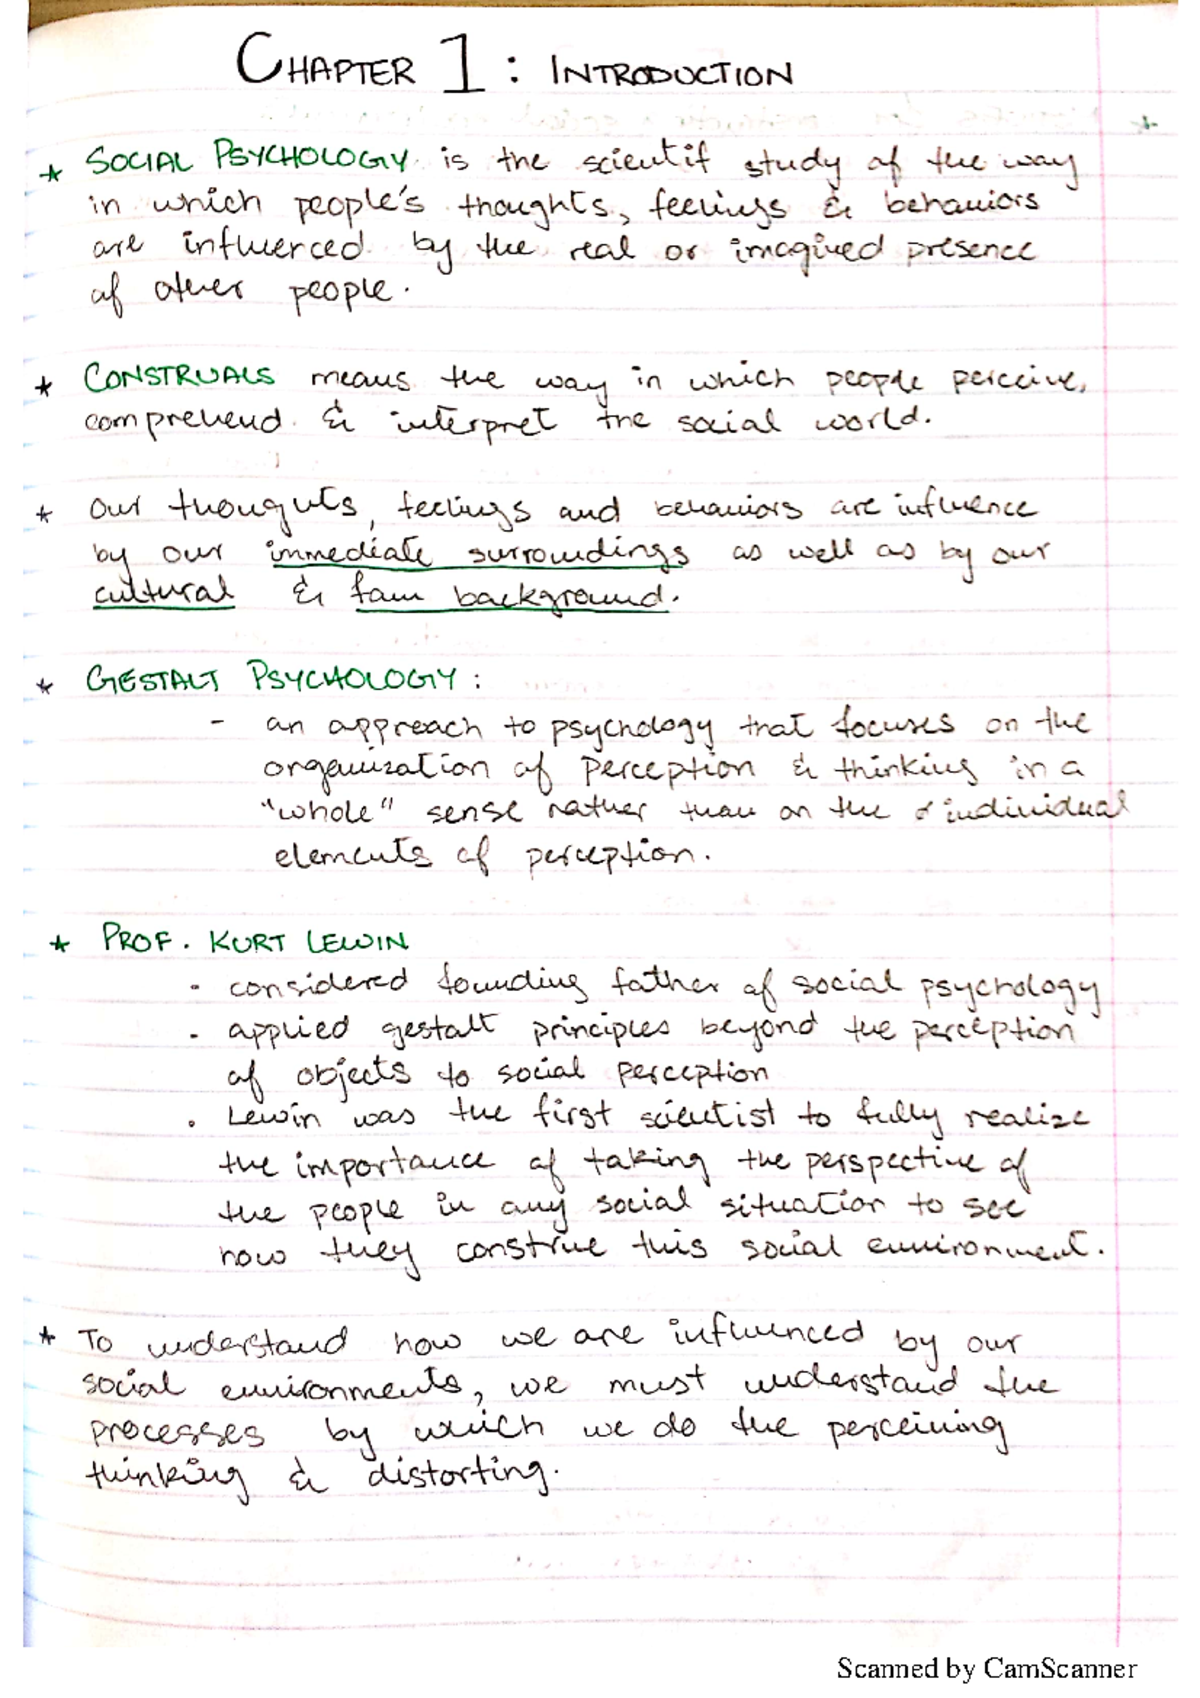 CHAPTER 1 : INTRODUCTION
* SOCIAL PSYCHOLOGY is the scientif study of the way
in which people's thoughts, feelings & behaviors
are influerced by the real or imagined presence
of other people.
* CONSTRUALS means the way in which people perceive,
comprehend & interpret the social world.
* Our thoughts, feelings and behaviors are influence
by our immediate surroundings as well as by our
cultural & fam background.
* GESTALT PSYCHOLOGY :
- an approach to psychology that focuses on the
organization of perception & thinking in a
"whole" sense rather than on the individual
elements of perception.
* PROF. KURT LEWIN
- considered founding father of social psychology
- applied gestalt principles beyond the perception
of objects to social perception
. Lewin was the first scientist to fully realize
the importance of taking the perspective of
the people in any social situation to see
how they construe this social environment.
* To understand how we are influenced by our
social environments, we must understand the
processes by which we do the perceiving
thinking & distorting.
Scanned by CamScanner